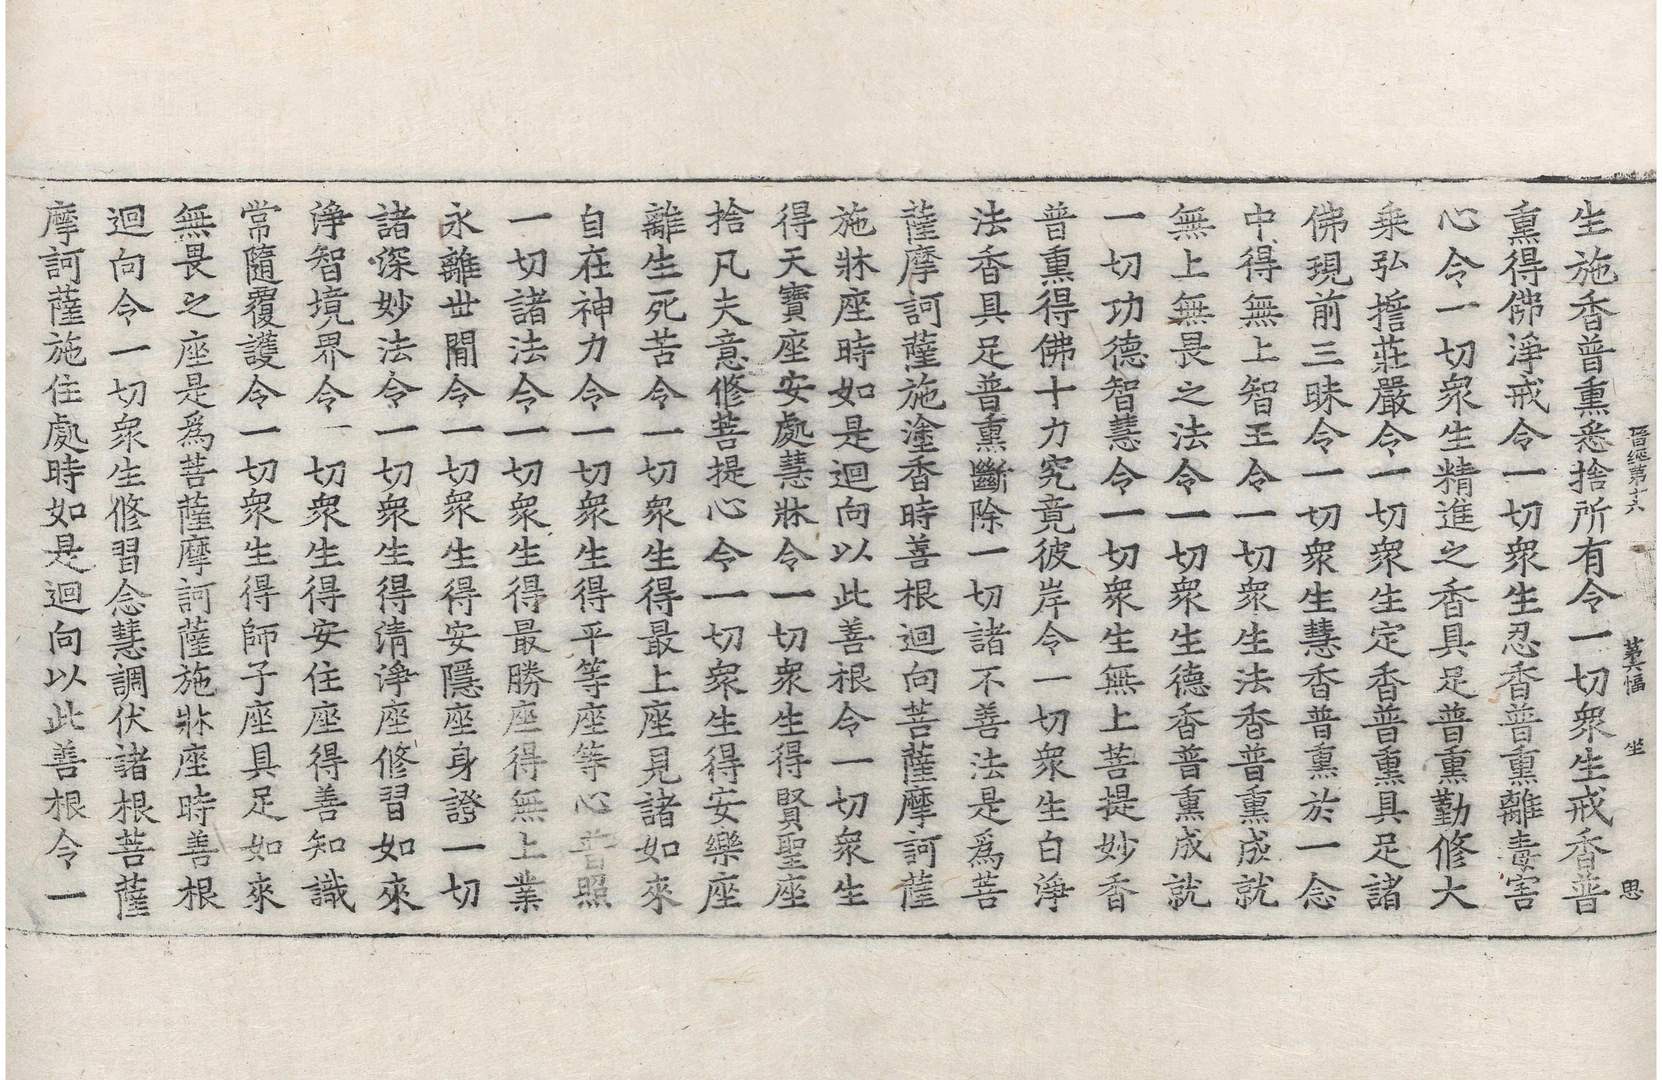 晉經第十六 第六幅 坐 思
生施香普熏悉捨所有令一切衆生戒香普
熏得佛淨戒令一切衆生忍香普熏離毒害
心令一切衆生精進之香具足普熏勤修大
乘弘擔莊嚴令一切衆生定香普熏具足諸
佛現前三昧令一切衆生慧香普熏於一念
中得無上智王令一切衆生法香普熏成就
無上無畏之法令一切衆生德香普熏成就
一切功德智慧令一切衆生無上菩提妙香
普熏得佛十力究竟彼岸令一切衆生白淨
法香具足普熏斷除一切諸不善法是爲菩
薩摩訶薩施塗香時善根迴向菩薩摩訶薩
施牀座時如是迴向以此善根令一切衆生
得天寶座安處慧牀令一切衆生得賢聖座
捨凡夫意修菩提心令一切衆生得安樂座
離生死苦令一切衆生得最上座見諸如來
自在神力令一切衆生得平等座等心普照
一切諸法令一切衆生得最勝座得無上業
永離世間令一切衆生得安隱座身證一切
諸深妙法令一切衆生得清淨座修習如來
淨智境界令一切衆生得安住座得善知識
常隨覆護令一切衆生得師子座具足如來
無畏之座是爲菩薩摩訶薩施牀座時善根
迴向令一切衆生修習念慧調伏諸根菩薩
摩訶薩施住處時如是迴向以此善根令一